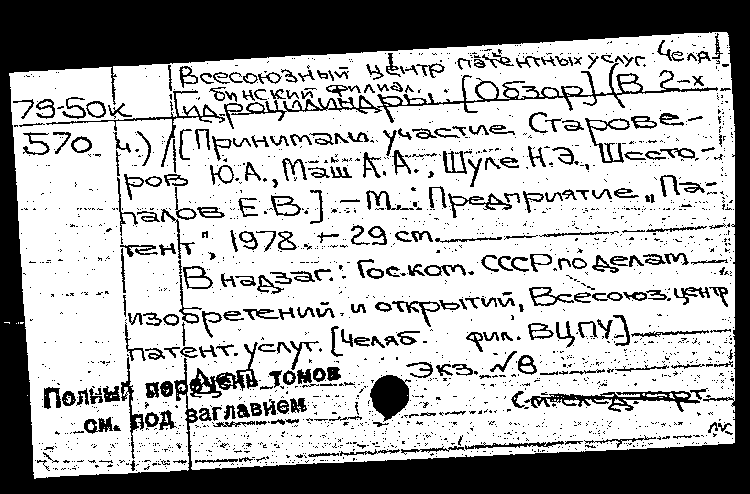 Всесоюзный центр патентных услуг. Челя-
бинский филиал.
79-50к Гидроцилиндры: [Обзор] (В 2-х
570 ч.) / [Принимали участие Старове-
ров Ю.А., Маш А.А., Шуле Н.Э., Шеста-
палов Е.В.] – М.: Предприятие „Па-
тент", 1978. – 29 см.
В надзаг.: Гос.ком. СССР по делам
изобретений и открытий, Всесоюз. центр
патент. услуг. [Челяб. фил. ВЦПУ]
Экз. №В
Полный перечень томов
см. под заглавием
См. след. карт.